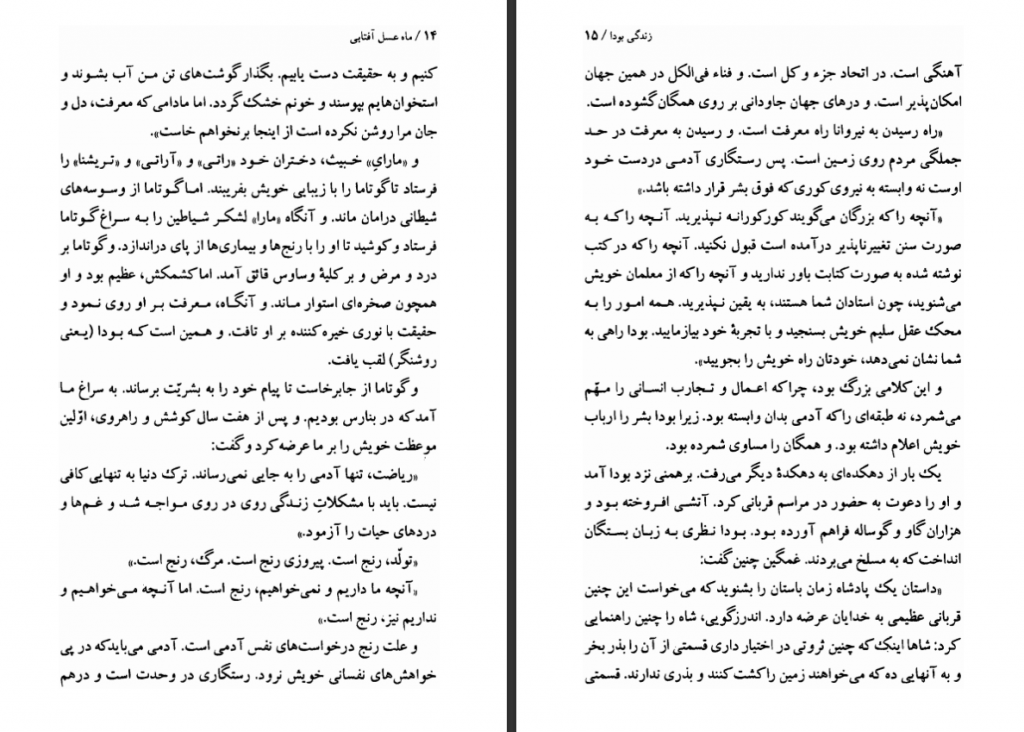 ۱۴ / ماه عسل آفتابی
کنیم و به حقیقت دست یابیم. بگذار گوشت‌های تن من آب بشوند و
استخوان‌هایم بپوسند و خونم خشک گردد. اما مادامی که معرفت، دل و
جان مرا روشن نکرده است از اینجا برنخواهم خاست».
و «مارایِ» خبیث، دختران خود «راتی» و «آراتی» و «تریشنا» را
فرستاد تا گوتاما را با زیبایی خویش بفریبند. اما گوتاما از وسوسه‌های
شیطانی درامان ماند. و آنگاه «مارا» لشکر شیاطین را به سراغ گوتاما
فرستاد و کوشید تا او را با رنج‌ها و بیماری‌ها از پای دراندازد. و گوتاما بر
درد و مرض و بر کلیهٔ وساوس فائق آمد. اما کشمکش، عظیم بود و او
همچون صخره‌ای استوار ماند. و آنگاه، معرفت بر او روی نمود و
حقیقت با نوری خیره‌کننده بر او تافت. و همین است که بودا (یعنی
روشنگر) لقب یافت.
و گوتاما از جابرخاست تا پیام خود را به بشریّت برساند. به سراغ ما
آمد که در بنارس بودیم. و پس از هفت سال کوشش و راهروی، اوّلین
موعظت خویش را بر ما عرضه کرد و گفت:
«ریاضت، تنها آدمی را به جایی نمی‌رساند. ترک دنیا به تنهایی کافی
نیست. باید با مشکلاتِ زندگی روی در روی مواجه شد و غم‌ها و
دردهای حیات را آزمود.»
«تولّد، رنج است. پیروزی رنج است. مرگ، رنج است.»
«آنچه ما داریم و نمی‌خواهیم، رنج است. اما آنچه می‌خواهیم و
نداریم نیز، رنج است.»
و علت رنج درخواست‌های نفس آدمی است. آدمی می‌باید که در پی
خواهش‌های نفسانی خویش نرود. رستگاری در وحدت است و درهم
زندگی بودا / ۱۵
آهنگی است. در اتحاد جزء و کل است. و فناء فی‌الکل در همین جهان
امکان‌پذیر است. و درهای جهان جاودانی بر روی همگان گشوده است.
«راه رسیدن به نیروانا راه معرفت است. و رسیدن به معرفت در حد
جملگی مردم روی زمین است. پس رستگاری آدمی دردست خود
اوست نه وابسته به نیروی کوری که فوق بشر قرار داشته باشد.»
«آنچه را که بزرگان می‌گویند کورکورانه نپذیرید. آنچه را که به
صورت سنن تغییرناپذیر درآمده است قبول نکنید. آنچه را که در کتب
نوشته شده به صورت کتابت باور ندارید و آنچه را که از معلمان خویش
می‌شنوید، چون استادان شما هستند، به یقین نپذیرید. همه امور را به
محک عقل سلیم خویش بسنجید و با تجربهٔ خود بیازمایید. بودا راهی به
شما نشان نمی‌دهد، خودتان راه خویش را بجویید».
و این کلامی بزرگ بود، چرا که اعمال و تجارب انسانی را مهّم
می‌شمرد، نه طبقه‌ای را که آدمی بدان وابسته بود. زیرا بودا بشر را ارباب
خویش اعلام داشته بود. و همگان را مساوی شمرده بود.
یک بار از دهکده‌ای به دهکدهٔ دیگر می‌رفت. برهمنی نزد بودا آمد
و او را دعوت به حضور در مراسم قربانی کرد. آتشی افروخته بود و
هزاران گاو و گوساله فراهم آورده بود. بودا نظری به زبان بستگان
انداخت که به مسلخ می‌بردند. غمگین چنین گفت:
«داستان یک پادشاه زمان باستان را بشنوید که می‌خواست این چنین
قربانی عظیمی به خدایان عرضه دارد. اندرزگویی، شاه را چنین راهنمایی
کرد: شاها اینک که چنین ثروتی در اختیار داری قسمتی از آن را بذر بخر
و به آنهایی ده که می‌خواهند زمین را کشت کنند و بذری ندارند. قسمتی